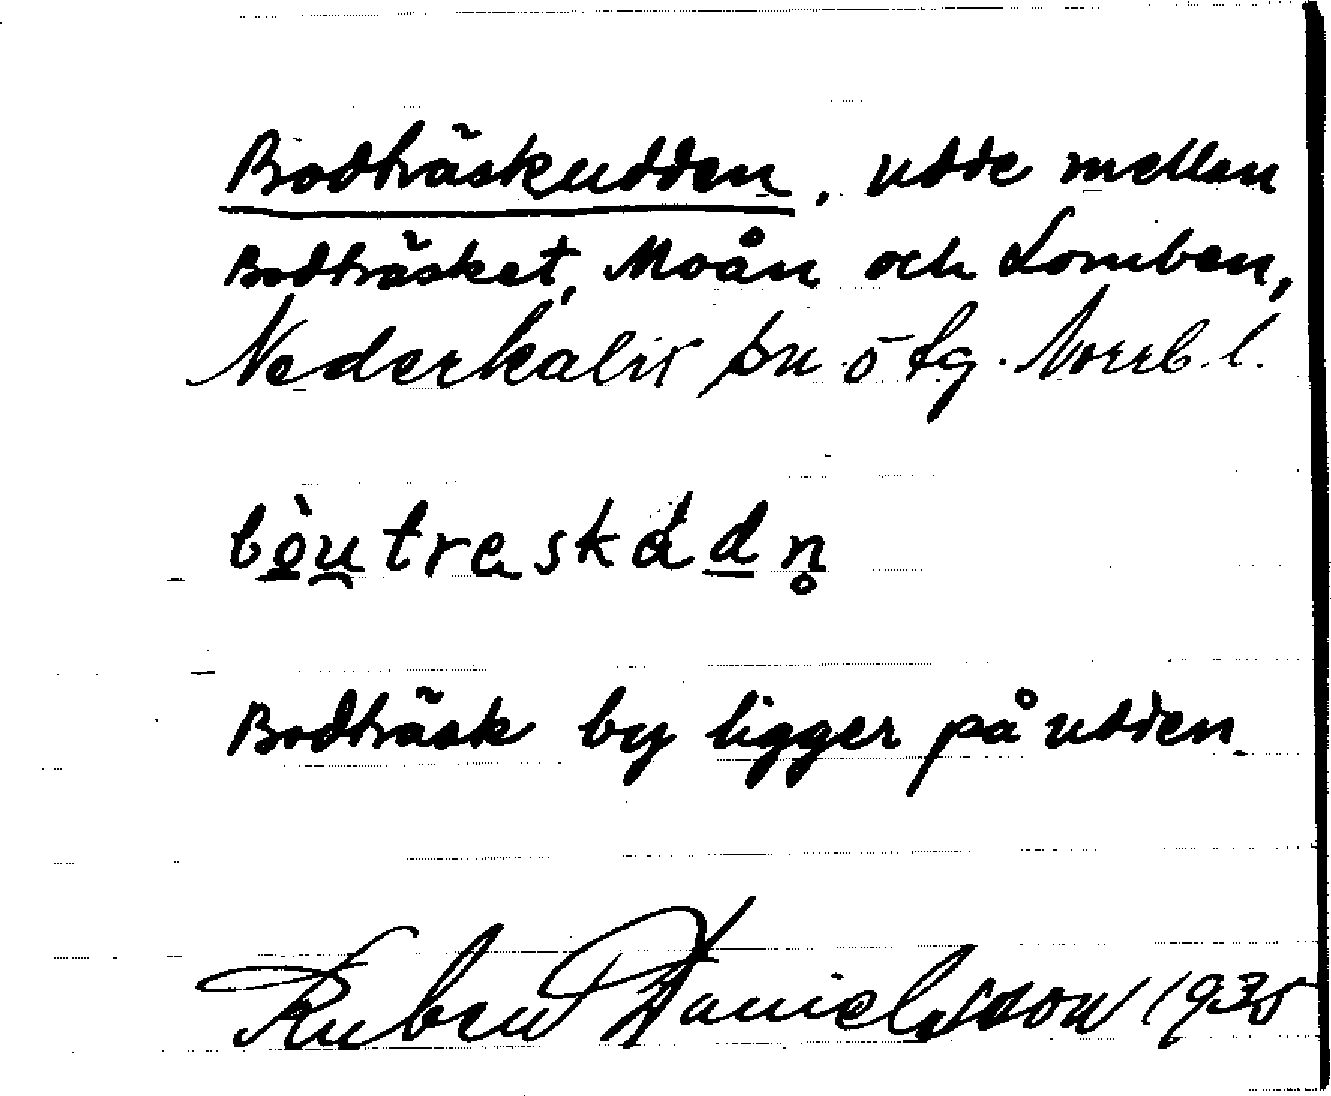 Bodträskudden, udde mellan
Bodträsket, Moån och Lomben,
Nederkalix sn ö tg. Norrb. l.
bòu̯treskáda̠n̥
Bodträsk by ligger på udden.
Ruben Danielsson 1935